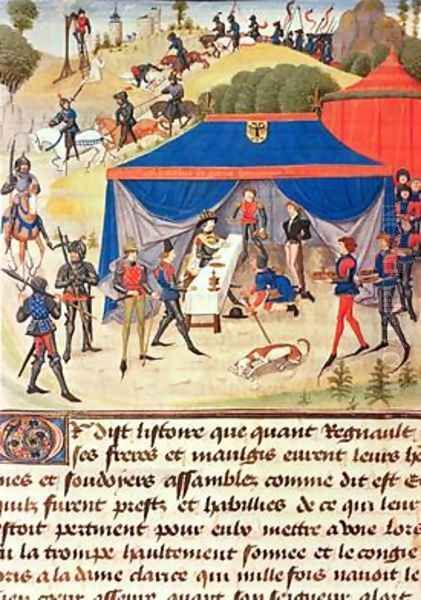 Or dist listoire que quant Regnault
ses freres et maulgis eurent leurs he
mes et souldoiers assamblez comme dit est Et
quilz furent prestz et habillies de ce qui leur
estoit pertinent pour eulx mettre a voie Lors
la trompe haultement sonnee et le congie
pris a la dame clarice qui mille fois navoit le
cuer asseure quant son seigneur aloit